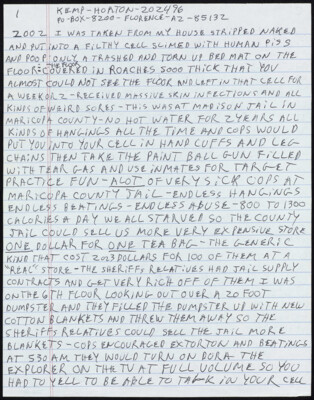 1
KEMP-HORTON-202496
PO-BOX-8200-FLORENCE-AZ-85132
2002 I WAS TAKEN FROM MY HOUSE STRIPPED NAKED
AND PUT INTO A FILTHY CELL SLIMED WITH HUMAN PISS
AND POOP ONLY A TRASHED AND TORN UP BED MAT ON THE
FLOOR - THE FLOOR COVERED IN ROACHES SOOO THICK THAT YOU
ALMOST COULD NOT SEE THE FLOOR AND LEFT IN THAT CELL FOR
A WEEK OR 2 - RECEIVED MASSIVE SKIN INFECTIONS AND ALL
KINDS OF WEIRD SORES - THIS WAS AT MADISON JAIL IN
MARICOPA COUNTY - NO HOT WATER FOR 2 YEARS ALL
KINDS OF HANGINGS ALL THE TIME AND COPS WOULD
PUT YOU INTO YOUR CELL IN HAND CUFFS AND LEG
CHAINS THEN TAKE THE PAINT BALL GUN FILLED
WITH TEAR GAS AND USE INMATES FOR TARGET
PRACTICE FUN - ALOT OF VERY SICK COPS AT
MARICOPA COUNTY JAIL - ENDLESS HANGINGS
ENDLESS BEATINGS - ENDLESS ABUSE - 800 TO 1300
CALORIES A DAY WE ALL STARVED SO THE COUNTY
JAIL COULD SELL US MORE VERY EXPENSIVE STORE
ONE DOLLAR FOR ONE TEA BAG - THE GENERIC
KIND THAT COST 2 OR 3 DOLLARS FOR 100 OF THEM AT A
"REAL" STORE - THE SHERIFFS RELATIVES HAD JAIL SUPPLY
CONTRACTS AND GET VERY RICH OFF OF THEM I WAS
ON THE 6TH FLOOR LOOKING OUT OVER A 20 FOOT
DUMPSTER AND THEY FILLED THE DUMPSTER UP WITH NEW
COTTON BLANKETS AND THREW THEM AWAY SO THE
SHERIFFS RELATIVES COULD SELL THE JAIL MORE
BLANKETS - COPS ENCOURAGED EXTORTON AND BEATINGS
AT 530 AM THEY WOULD TURN ON DORA THE
EXPLORER ON THE TV AT FULL VOLUME SO YOU
HAD TO YELL TO BE ABLE TO TALK IN YOUR CELL